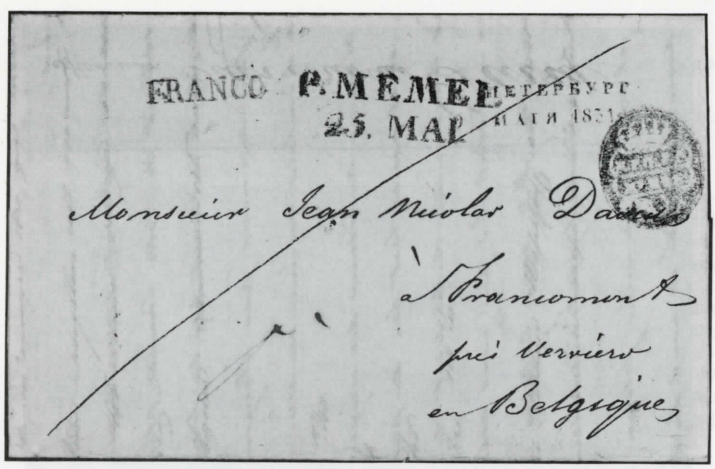 FRANCO P. MEMEL ПЕТЕРБУРГ
25. MAI 1831
Monsieur Jean Nicolas
à Francomont
près Verviers
en Belgique